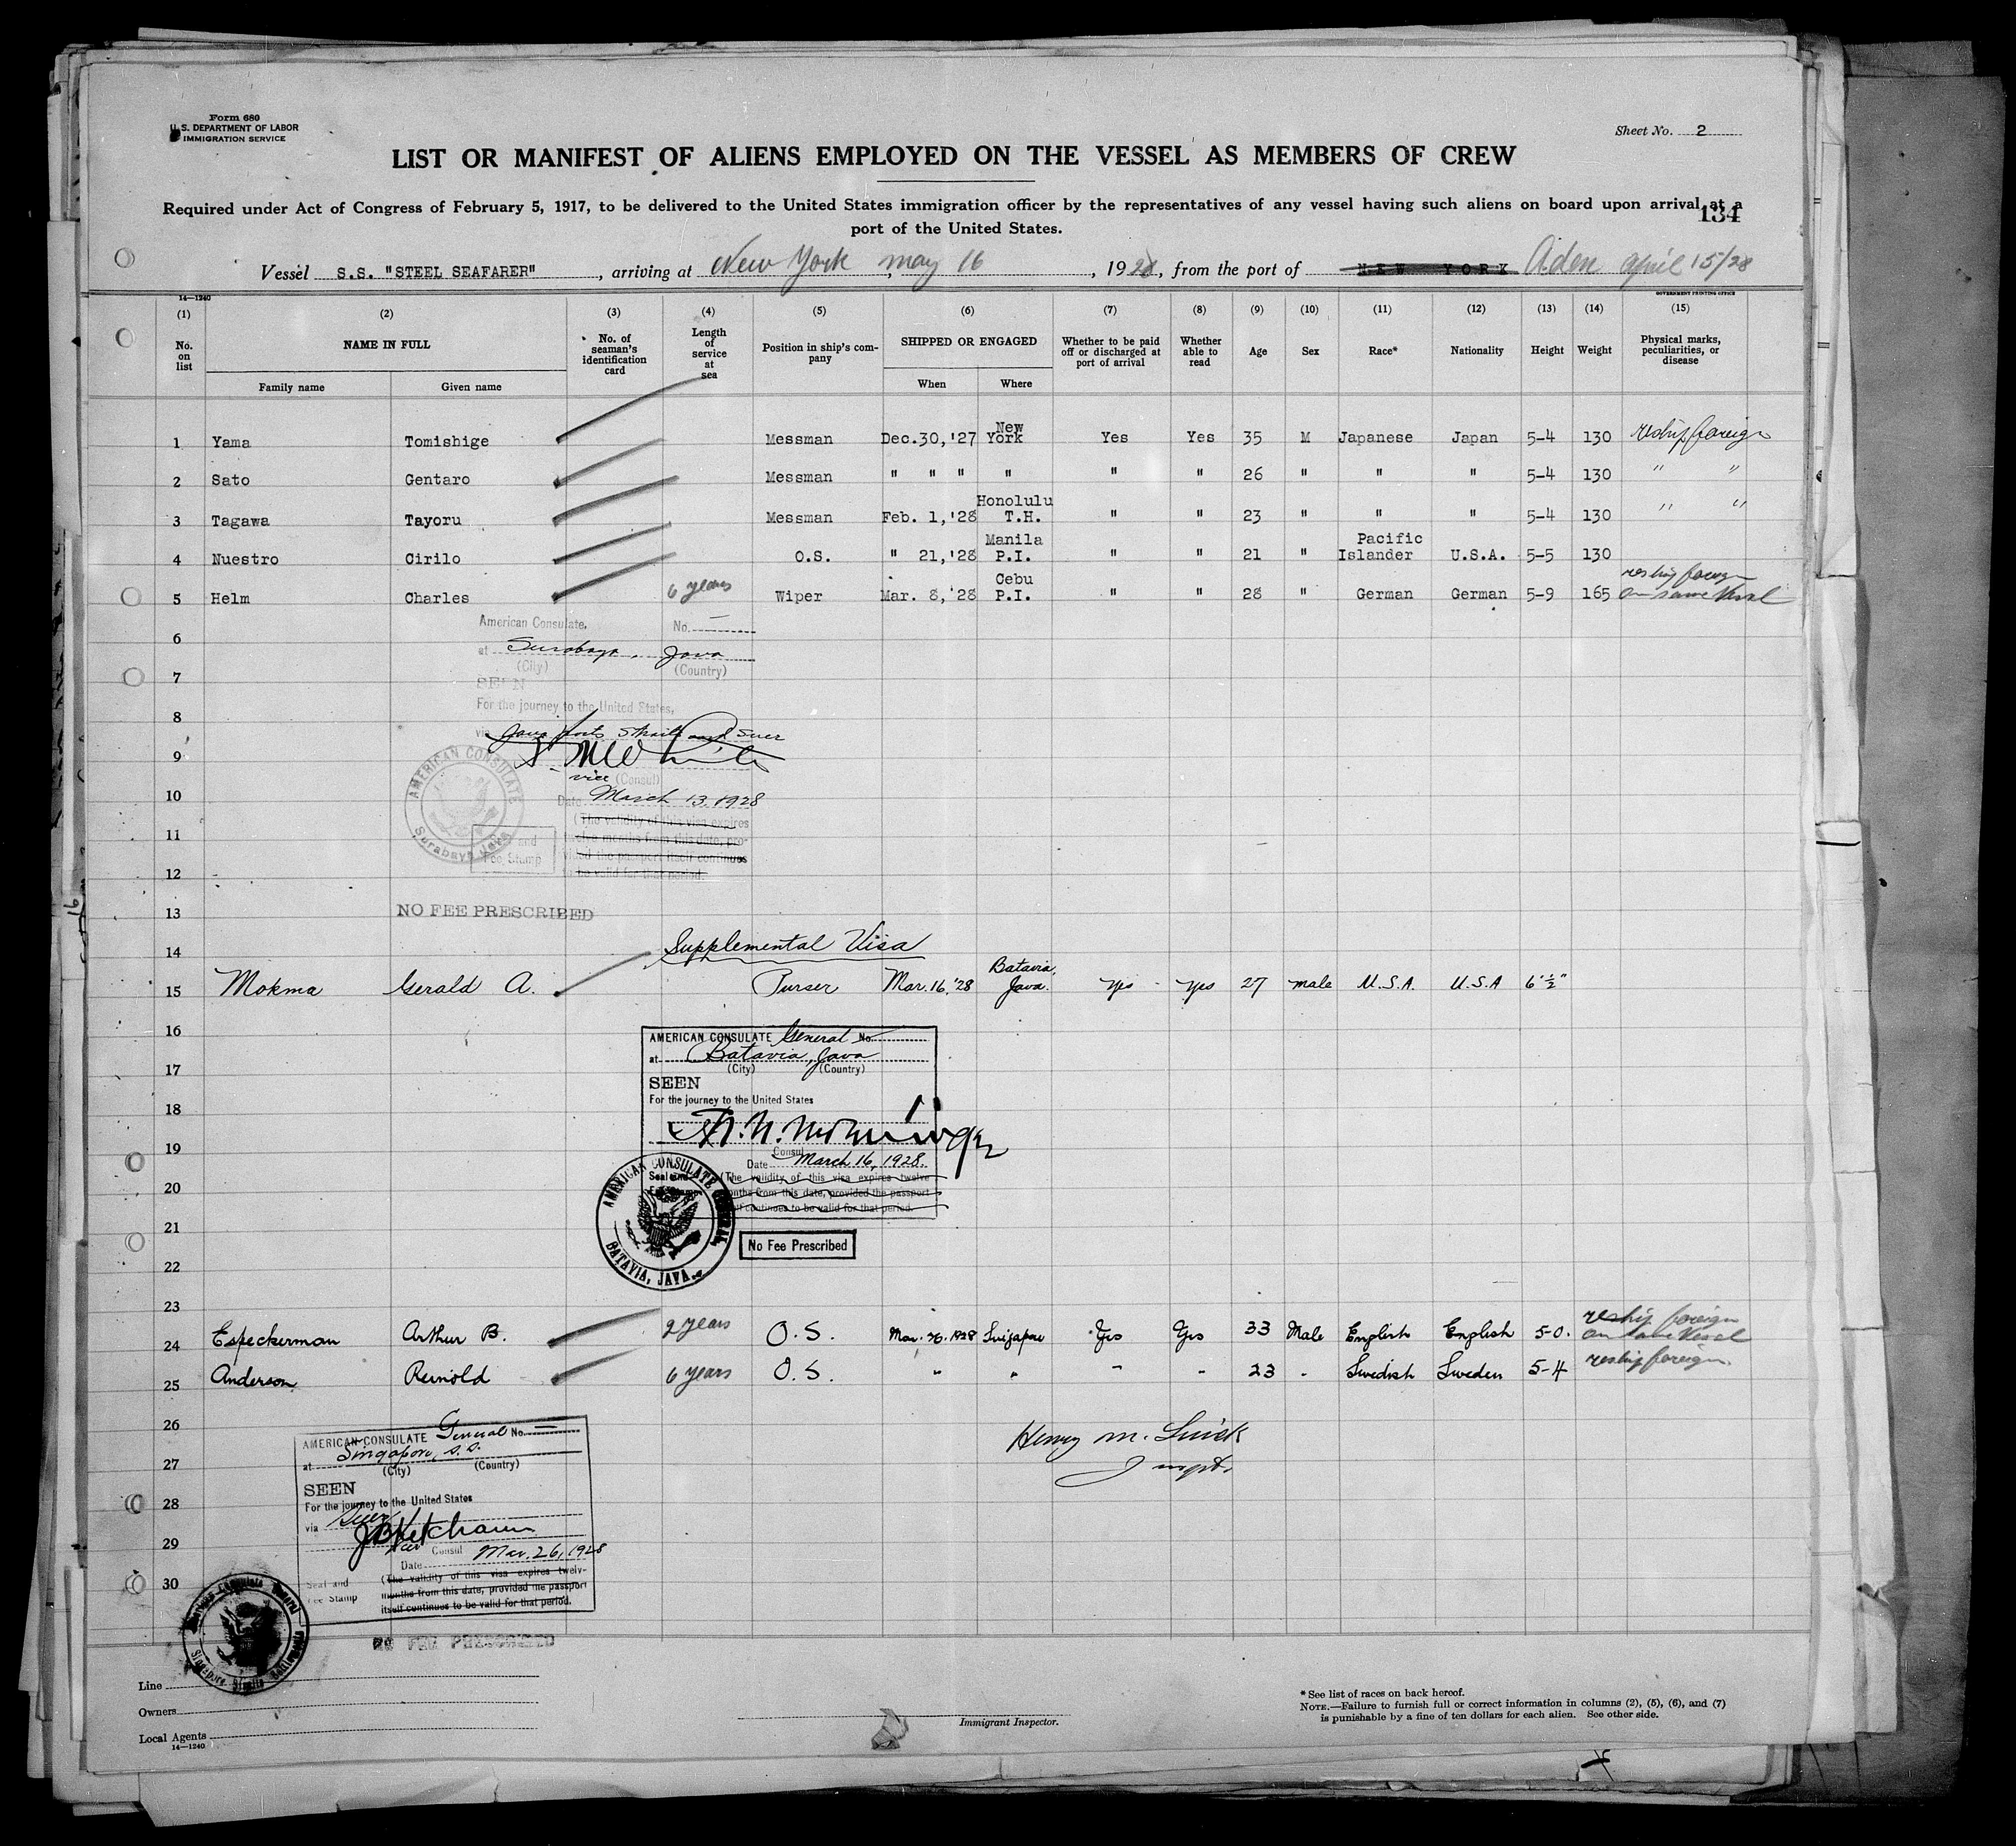 Form 680
U. S. DEPARTMENT OF LABOR
IMMIGRATION SERVICE
Sheet No. 2
LIST OR MANIFEST OF ALIENS EMPLOYED ON THE VESSEL AS MEMBERS OF CREW
Required under Act of Congress of February 5, 1917, to be delivered to the United States immigration officer by the representatives of any vessel having such aliens on board upon arrival at a
port of the United States.
134
Vessel S.S. "STEEL SEAFARER", arriving at New York may 16, 1928, from the port of NEW YORK Aden april 15/28
14—1240
GOVERNMENT PRINTING OFFICE
(1) (2) (3) (4) (5) (6) (7) (8) (9) (10) (11) (12) (13) (14) (15)
No. on list NAME IN FULL No. of seaman's identification card Length of service at sea Position in ship's company SHIPPED OR ENGAGED Whether to be paid off or discharged at port of arrival Whether able to read Age Sex Race* Nationality Height Weight Physical marks, peculiarities, or disease
Family name Given name When Where
1 Yama Tomishige Messman Dec.30,'27 New York Yes Yes 35 M Japanese Japan 5-4 130 reship foreign
2 Sato Gentaro Messman " " " " " " 26 " " " 5-4 130 " "
3 Tagawa Tayoru Messman Feb. 1,'28 Honolulu T.H. " " 23 " " " 5-4 130 " "
4 Nuestro Cirilo O.S. " 21,'28 Manila P.I. " " 21 " Pacific Islander U.S.A. 5-5 130
5 Helm Charles 6 years Wiper Mar. 8,'28 Cebu P.I. " " 28 " German German 5-9 165 reship foreign on same Vessel
6
American Consulate, No. —
at Surabaya, Java
(City) (Country)
7
SEEN
For the journey to the United States,
8
via Java ports Straits and Suez
9
vice (Consul)
10
Date March 13, 1928
AMERICAN CONSULATE
Surabaya Java
(The validity of this visa expires
11
twelve months from this date, pro-
vided the passport itself continues
12
to be valid for that period.
Seal and
Fee Stamp
13
NO FEE PRESCRIBED
14
Supplemental Visa
15 Mokma Gerald A. Purser Mar. 16, '28 Batavia, Java. yes - yes 27 male U.S.A. U.S.A 6'½"
16
AMERICAN CONSULATE General No.
at Batavia, Java
17
(City) (Country)
SEEN
For the journey to the United States
18
19
Consul
Date March 16, 1928.
Seal and
Fee Stamp
(The validity of this visa expires twelve
20
months from this date, provided the passport
itself continues to be valid for that period.
21
AMERICAN CONSULATE GENERAL,
BATAVIA, JAVA.
No Fee Prescribed
22
23
24 Especkerman Arthur B. 2 years O.S. Mar. 26. 1928 Singapore Yes Yes 33 Male English English 5-0. reship foreign on same Vessel
25 Anderson Reinold 6 years O.S. " " " " 23 " Swedish Sweden 5-4 reship foreign
26
Henry M.
AMERICAN CONSULATE General No. —
at Singapore, S.S.
27
(City) (Country)
SEEN
28
For the journey to the United States
via Suez
29
Vice Consul
Date Mar. 26, 1928
30
Seal and
Fee Stamp
(The validity of this visa expires twelve
months from this date, provided the passport
itself continues to be valid for that period.
American Consulate General
Singapore Straits Settlements
NO FEE PRESCRIBED
Line
Owners
Local Agents
14—1240
Immigrant Inspector.
* See list of races on back hereof.
NOTE.—Failure to furnish full or correct information in columns (2), (5), (6), and (7)
is punishable by a fine of ten dollars for each alien. See other side.